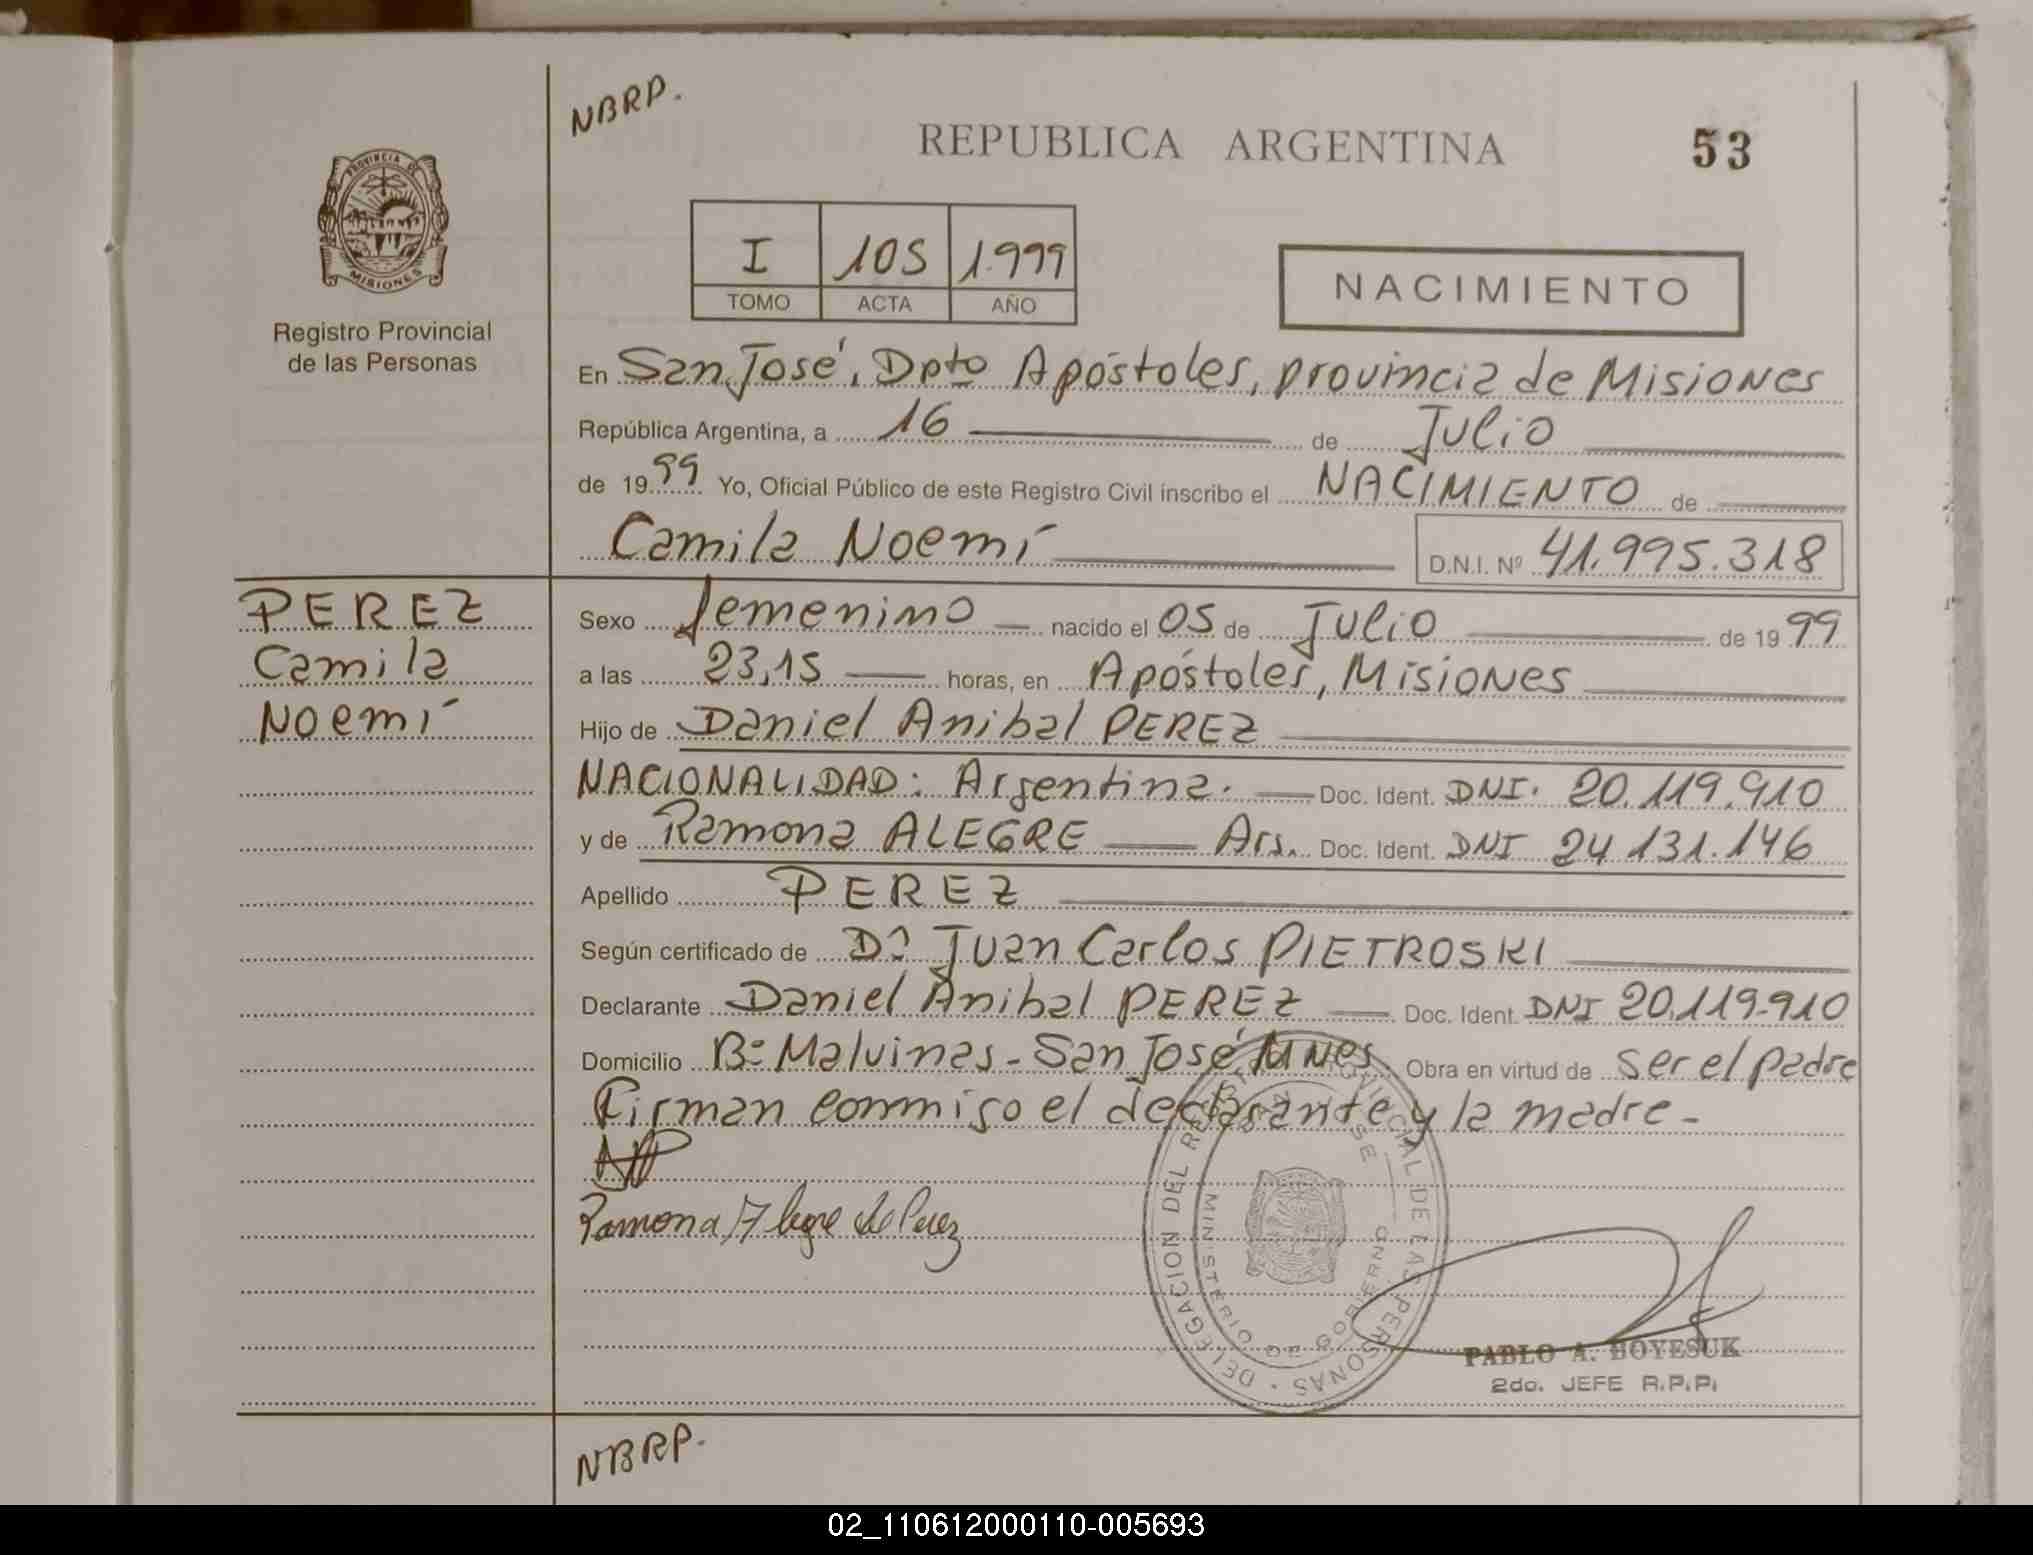 NBRP.
REPUBLICA ARGENTINA
53
PROVINCIA DE
MISIONES
Registro Provincial
de las Personas
I 105 1.999
TOMO ACTA AÑO
NACIMIENTO
En San José, Dpto Apóstoles, provincia de Misiones
República Argentina, a 16 de Julio
de 1999 Yo, Oficial Público de este Registro Civil inscribo el NACIMIENTO de
Camila Noemí D.N.I. Nº 41.995.318
PEREZ
Camila
Noemí
Sexo femenino nacido el 05 de Julio de 1999
a las 23,15 horas, en Apóstoles, Misiones
Hijo de Daniel Anibal PEREZ
NACIONALIDAD: Argentina. Doc. Ident. DNI. 20.119.910
y de Ramona ALEGRE Arg. Doc. Ident. DNI 24.131.146
Apellido PEREZ
Según certificado de Dr Juan Carlos PIETROSKI
Declarante Daniel Anibal PEREZ Doc. Ident. DNI 20.119.910
Domicilio Bº Malvinas - San José Mnes. Obra en virtud de ser el padre
Firman conmigo el declarante y la madre -
Ramona Alegre de Perez
DELEGACION DEL REGISTRO PROVINCIAL DE LAS PERSONAS
MINISTERIO DE GOBIERNO
PABLO A. BOYESUK
2do. JEFE R.P.P.
NBRP.
02_110612000110-005693